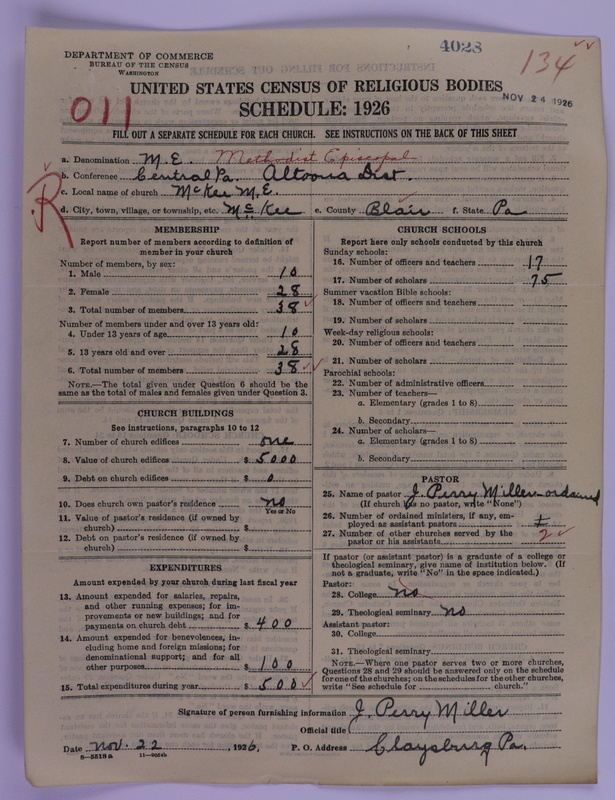 4028
134
DEPARTMENT OF COMMERCE
BUREAU OF THE CENSUS
WASHINGTON
UNITED STATES CENSUS OF RELIGIOUS BODIES
NOV 24 1926
011
SCHEDULE: 1926
FILL OUT A SEPARATE SCHEDULE FOR EACH CHURCH. SEE INSTRUCTIONS ON THE BACK OF THIS SHEET
R
a. Denomination M.E. Methodist Episcopal
b. Conference Central Pa. Altoona Dist.
c. Local name of church McKee M.E.
d. City, town, village, or township, etc. McKee e. County Blair f. State Pa
MEMBERSHIP
Report number of members according to definition of
member in your church
Number of members, by sex:
1. Male 10
2. Female 28
3. Total number of members 38
Number of members under and over 13 years old:
4. Under 13 years of age 10
5. 13 years old and over 28
6. Total number of members 38
NOTE.—The total given under Question 6 should be the
same as the total of males and females given under Question 3.
CHURCH BUILDINGS
See instructions, paragraphs 10 to 12
7. Number of church edifices one
8. Value of church edifices $ 5000
9. Debt on church edifices $ 0
10. Does church own pastor's residence no
Yes or No
11. Value of pastor's residence (if owned by
church) $
12. Debt on pastor's residence (if owned by
church) $
EXPENDITURES
Amount expended by your church during last fiscal year
13. Amount expended for salaries, repairs,
and other running expenses; for im-
provements or new buildings; and for
payments on church debt $ 400
14. Amount expended for benevolences, in-
cluding home and foreign missions; for
denominational support; and for all
other purposes $ 100
15. Total expenditures during year $ 500
CHURCH SCHOOLS
Report here only schools conducted by this church
Sunday schools:
16. Number of officers and teachers 17
17. Number of scholars 75
Summer vacation Bible schools:
18. Number of officers and teachers
19. Number of scholars
Week-day religious schools:
20. Number of officers and teachers
21. Number of scholars
Parochial schools:
22. Number of administrative officers
23. Number of teachers—
a. Elementary (grades 1 to 8)
b. Secondary
24. Number of scholars—
a. Elementary (grades 1 to 8)
b. Secondary
PASTOR
25. Name of pastor J. Perry Miller-ordained
(If church has no pastor, write "None")
26. Number of ordained ministers, if any, em-
ployed as assistant pastors
27. Number of other churches served by the
pastor or his assistants 2
If pastor (or assistant pastor) is a graduate of a college or
theological seminary, give name of institution below. (If
not a graduate, write "No" in the space indicated.)
Pastor:
28. College no
29. Theological seminary no
Assistant pastor:
30. College
31. Theological seminary
NOTE.—Where one pastor serves two or more churches,
Questions 28 and 29 should be answered only on the schedule
for one of the churches; on the schedules for the other churches,
write "See schedule for church."
Signature of person furnishing information J. Perry Miller
Official title
Date Nov. 22, 1926. P. O. Address Claysburg Pa.
8-5518a 11-9054b